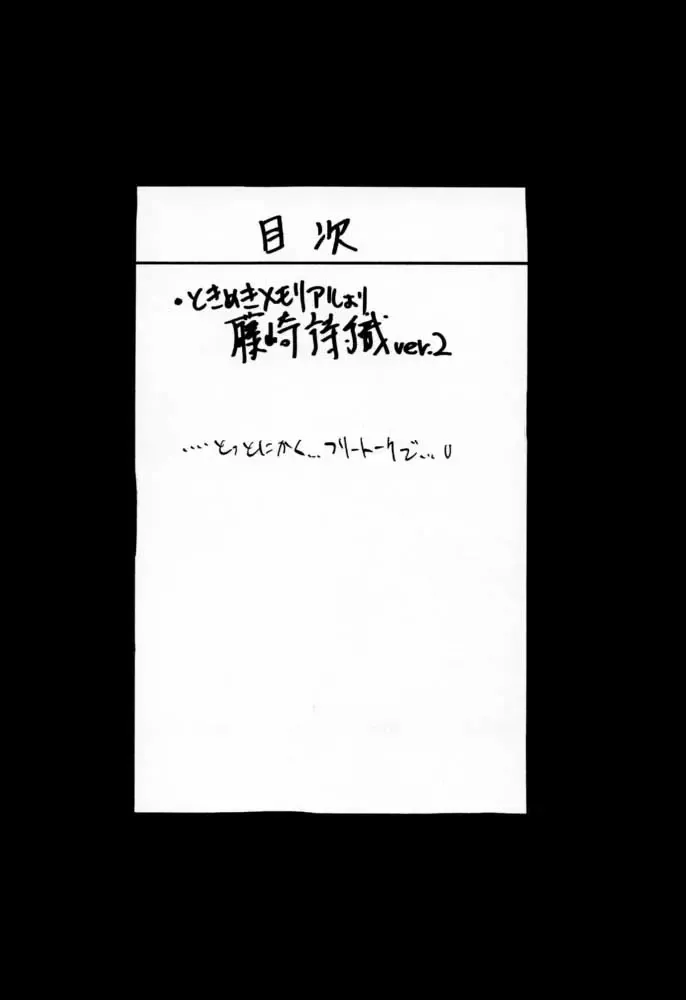 目次
・ときめきメモリアルより
藤崎詩織 ver.2
‥‥とっとにかく…フリートークで…